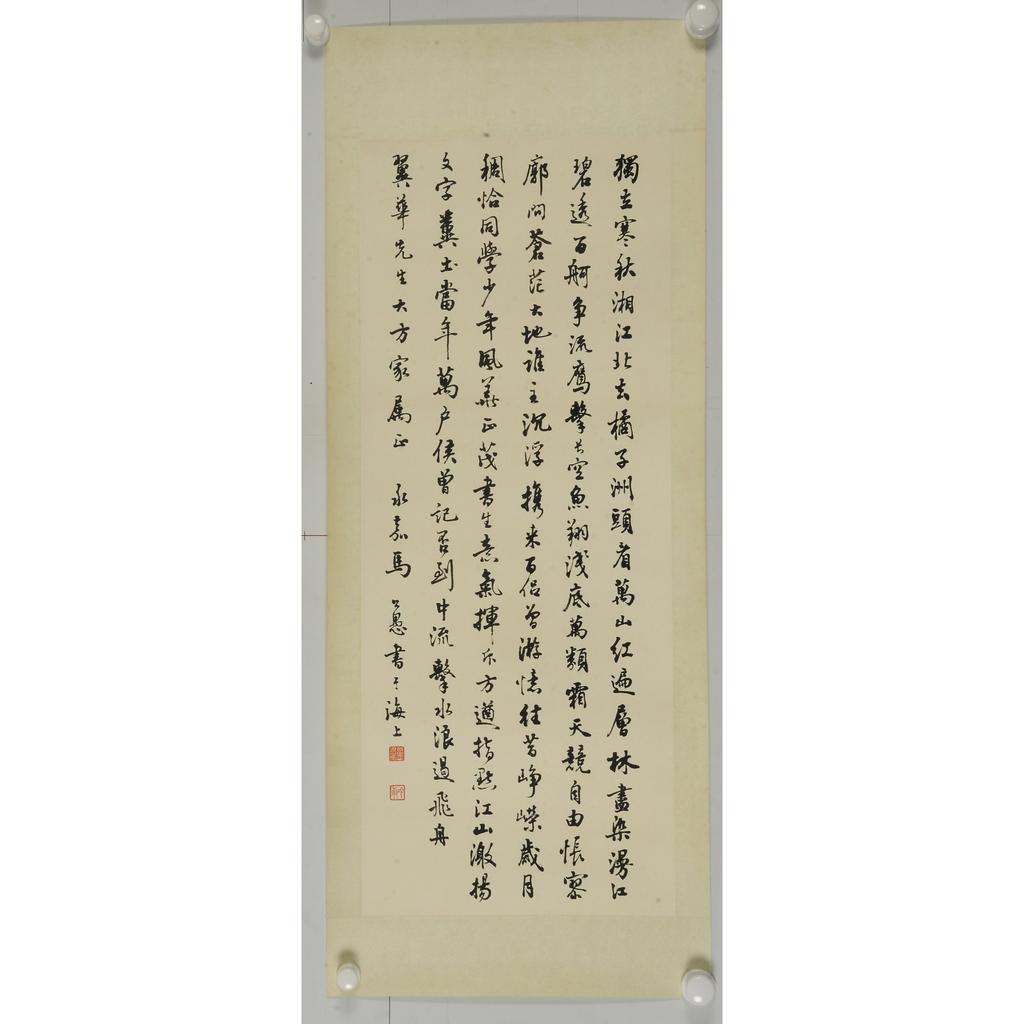 獨立寒秋湘江北去橘子洲頭看萬山红遍層林盡染漫江
碧透百舸争流鷹擊長空魚翔淺底萬類霜天競自由悵寥
廓問蒼茫大地誰主沉浮攜来百侣曾游憶往昔崢嶸歲月
稠恰同學少年風華正茂書生意氣揮斥方遒指點江山激揚
文字糞土當年萬户侯曾記否到中流擊水浪遏飛舟
翼華先生大方家属正 永嘉馬公愚書于海上